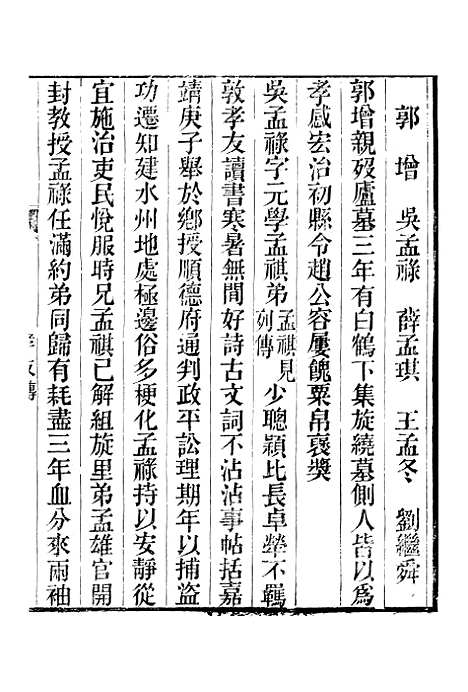 郭增　吳孟祿　薛孟琪　王孟冬　劉繼舜
郭增親歿廬墓三年有白鶴下集旋繞墓側人皆以爲
孝感宏治初縣令趙公容屢餽粟帛襃獎
吳孟祿字元學孟祺弟孟祺見列傳少聰穎比長卓犖不羈
敦孝友讀書寒暑無間好詩古文詞不沾沾事帖括嘉
靖庚子舉於鄉授順德府通判政平訟理期年以捕盜
功遷知建水州地處極邊俗多梗化孟祿持以安靜從
宜施治吏民悅服時兄孟祺已解組旋里弟孟雄官開
封教授孟祿任滿約弟同歸有耗盡三年血分來兩袖
孝友傳